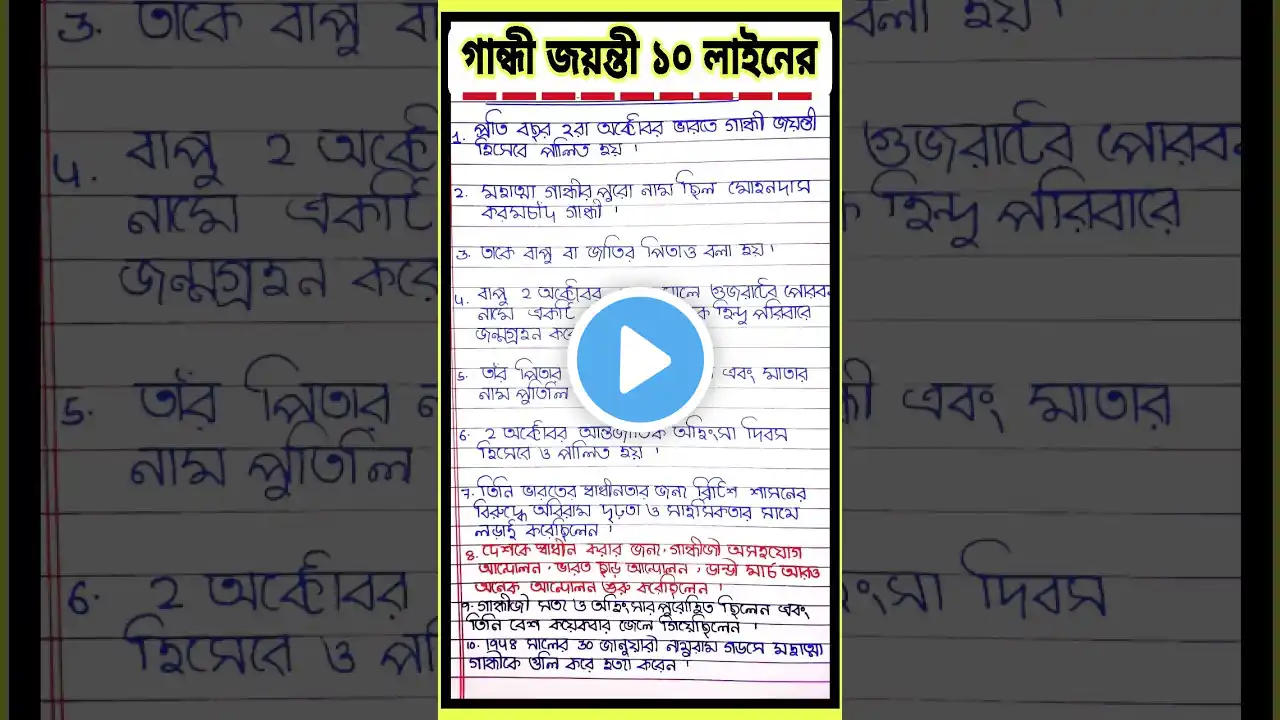 গান্ধী জয়ন্তী ১০ লাইনের
1. প্রতি বছর ২রা অক্টোবর ভারতে গান্ধী জয়ন্তী
হিসেবে পালিত হয় ।
2. মহাত্মা গান্ধীর পুরো নাম ছিল মোহনদাস
করমচাঁদ গান্ধী ।
3. তাকে বাপু বা জাতির পিতাও বলা হয় ।
4. বাপু 2 অক্টোবর সালে গুজরাটের পোরবন
নামে একটি হিন্দু পরিবারে
জন্মগ্রহন করে
5. তাঁর পিতার এবং মাতার
নাম পুতলি
6. 2 অক্টোবর আন্তর্জাতিক অহিংসা দিবস
হিসেবে ও পালিত হয় ।
7. তিনি ভারতের স্বাধীনতার জন্য ব্রিটিশ শাসনের
বিরুদ্ধে অবিরাম দৃঢ়তা ও সাহসিকতার সামে
লড়াই করেছিলেন ।
8. দেশকে স্বাধীন করার জন্য গান্ধীজী অসহযোগ
আন্দোলন, ভারত ছাড় আন্দোলন, ডান্ডী মার্চ আরও
অনেক আন্দোলন শুরু করেছিলেন ।
9. গান্ধীজী সত্য ও অহিংসার পুরোহিত ছিলেন এবং
তিনি বেশ কয়েকবার জেলে গিয়েছিলেন ।
10. ১৯৪৪ সালের 30 জানুয়ারী নাথুরাম গডসে মহাত্মা
গান্ধীকে গুলি করে হত্যা করেন ।